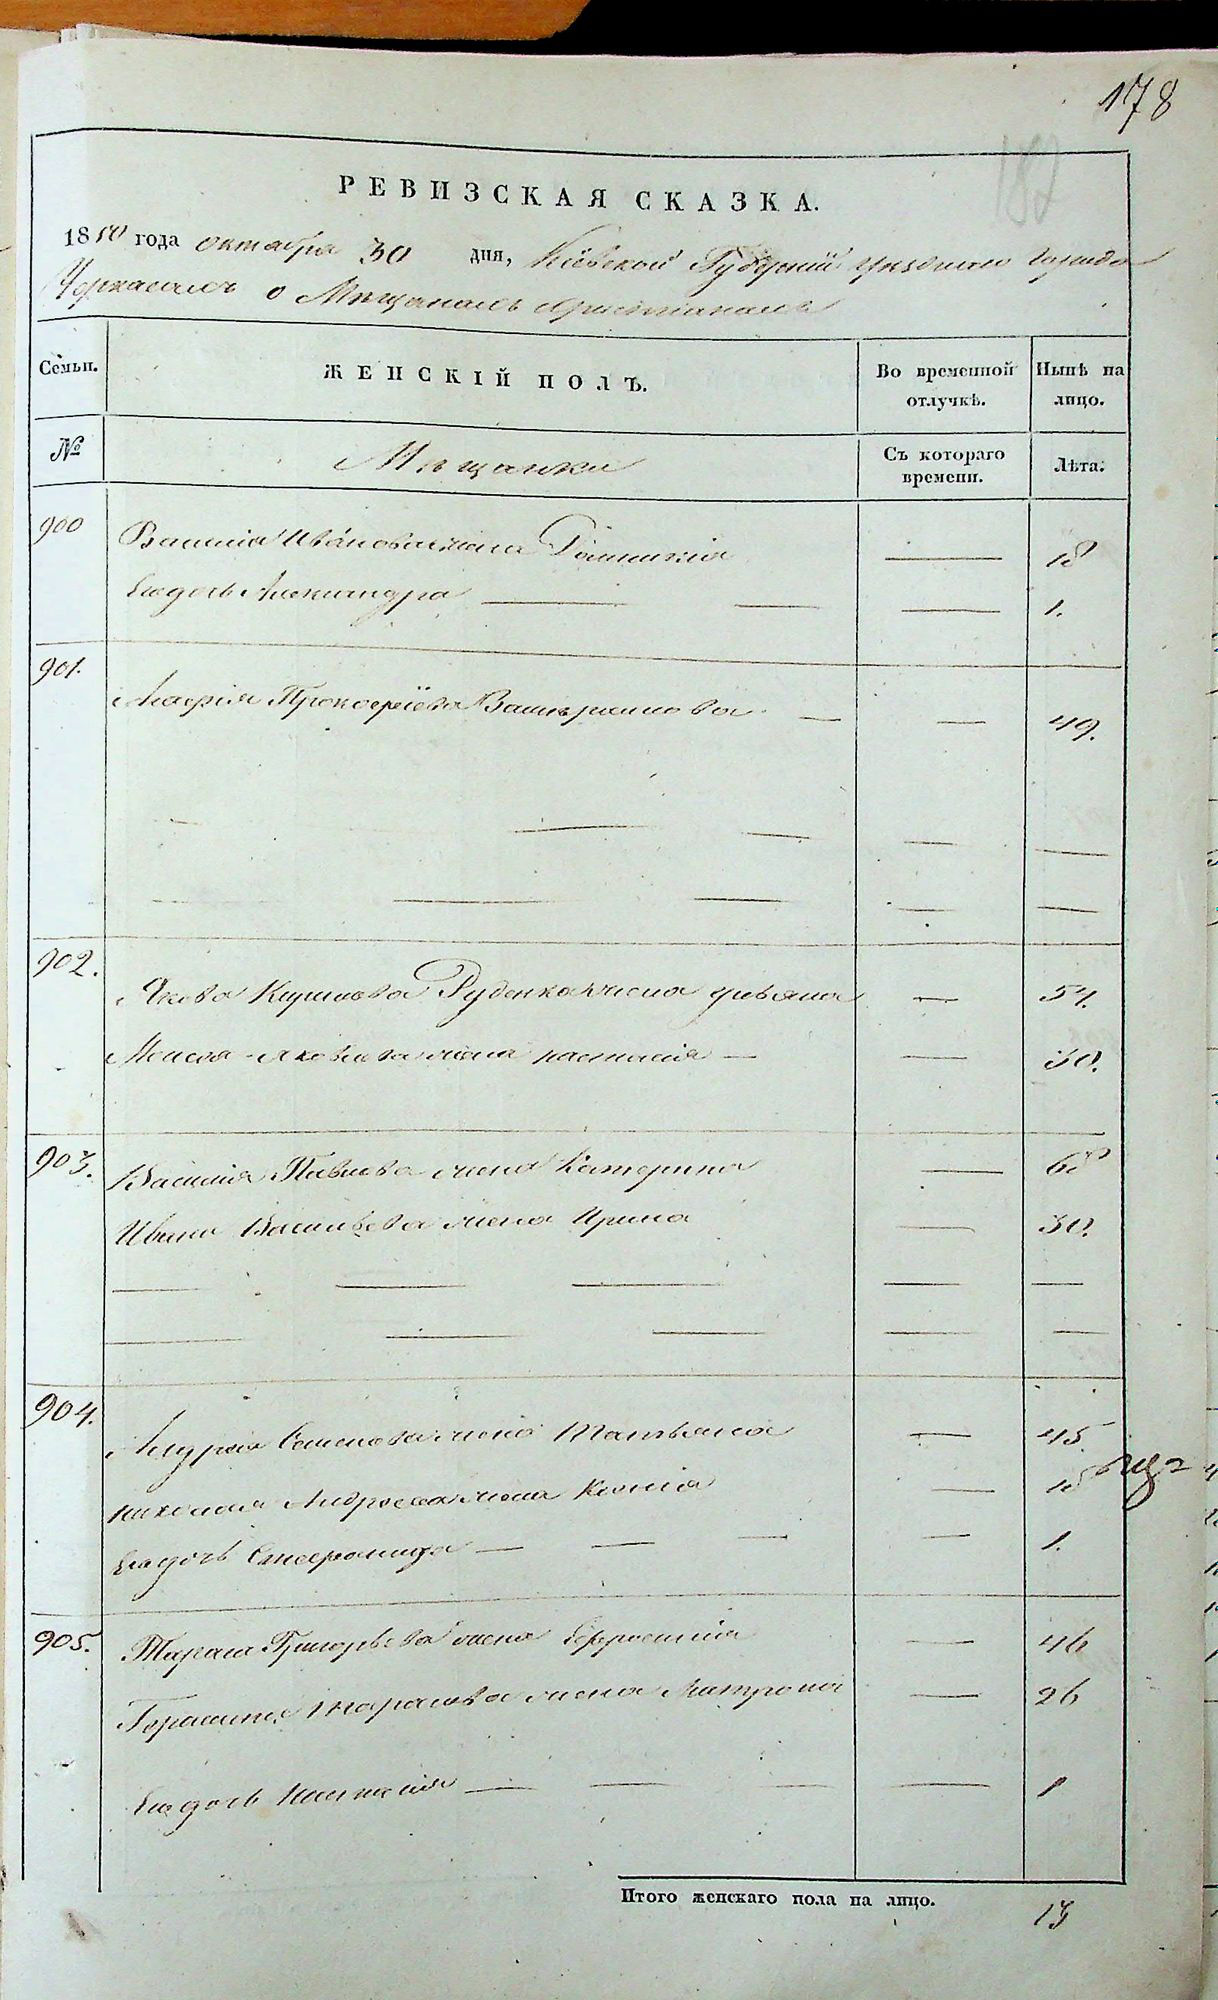 178
182
РЕВИЗСКАЯ СКАЗКА.
1850 года октября 30 дня, Кіевской Губерніи уезднаго города
Черкасъ о Мещанахъ христіанахъ
Семьи. ЖЕНСКІЙ ПОЛЪ. Во временной отлучкѣ. Нынѣ на лицо.
№ Мещанки Съ котораго времени. Лѣта.
900 Василія Иванова жена Домникія 18
Ея дочь Александра 1.
901. Марфія Прокофіева 49.
902. Якова Кирилова Руденка жена Ульяна 54.
Моисея Яковлева жена Настасія 30.
903. Василія Павлова жена Катерина 68
Ивана Васильева жена Ирина 30.
904. Андрея Семенова жена Татьяна 45
Николая Андреева жена Ксенія 18
Ея дочь 1.
905. Тараса Григорьева жена Ефросинія 46
Герасима Тарасова жена Матрона 26
Ея дочь Настасія 1
Итого женскаго пола на лицо. 13